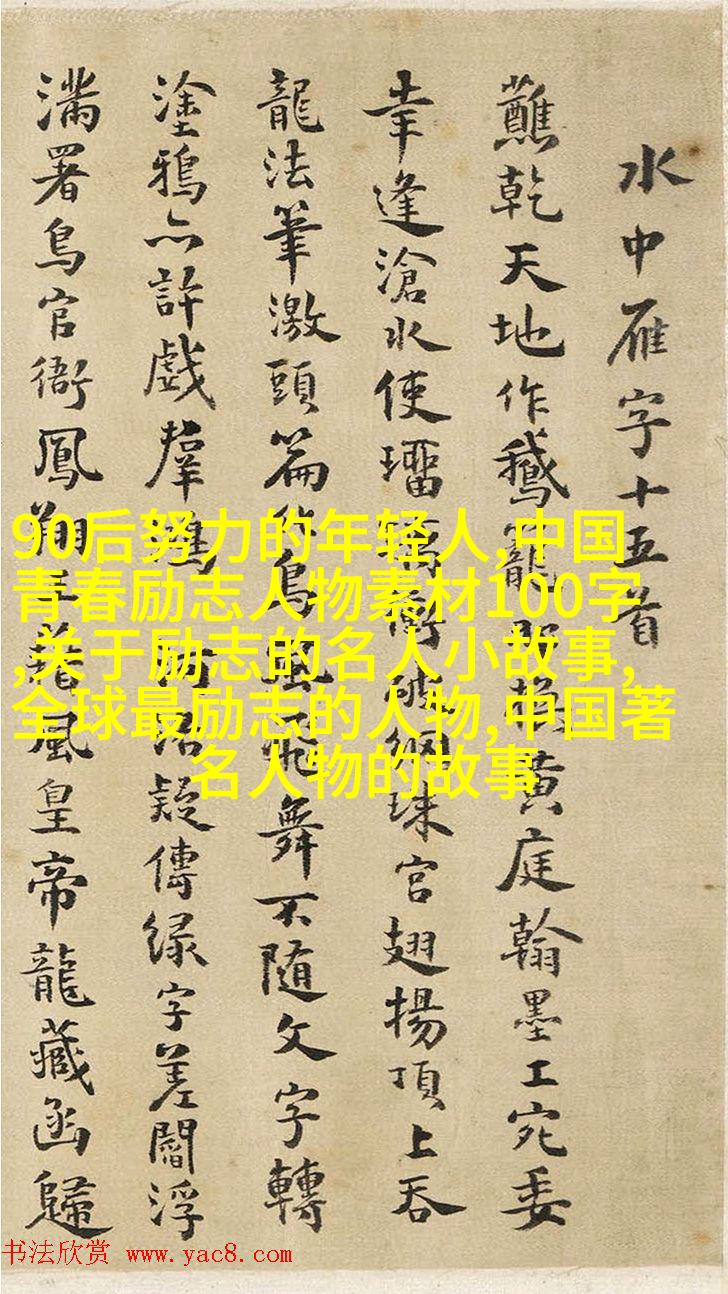 水中雁字十五首
蘸乾天地作鵝籠
黄庭翰墨工宛委
幸逢滄水使
珠宮翅揚頂上吞
龍法筆激頭篇作鳥
風飛舞不随文字轉
塗鴉亦許戲羣
疑傳緑字差閻浮
滿署鳥官衙鳳翔
風皇帝龍藏函歸
90后努力的年轻人,中国
青春励志人物素材100字
,关于励志的名人小故事,
全球最励志的人物,中国著
名人物的故事
书法欣赏 www.yac8.com